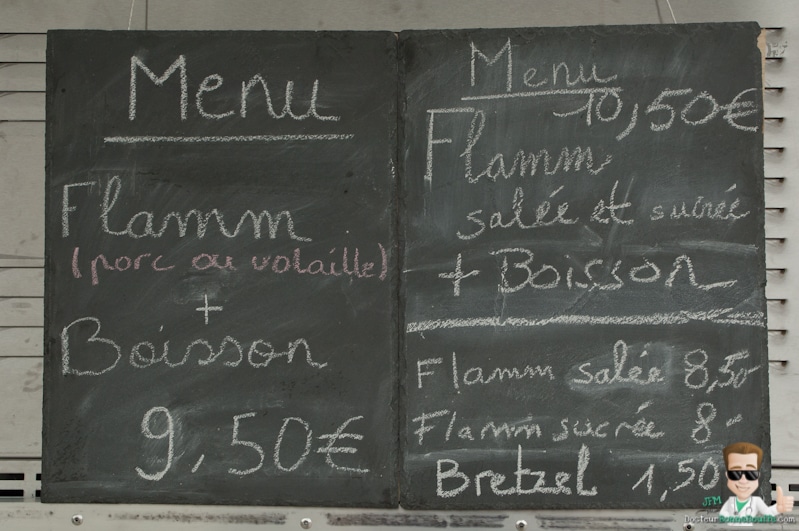 Menu
Flamm
(porc ou volaille)
+
Boisson
9,50€
Menu
10,50€
Flamm
salée et sucrée
+ Boisson
Flamm salée 8,50
Flamm sucrée 8-
Bretzel 1,50
JFM